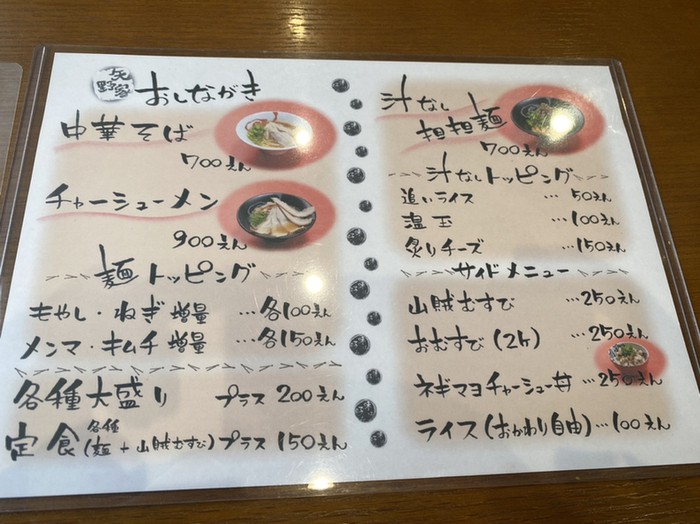 矢野家
おしながき
中華そば
700えん
チャーシューメン
900えん
麺トッピング
もやし・ねぎ増量 …各100えん
メンマ・キムチ増量 …各150えん
各種大盛り プラス 200えん
定食(各種麺+山賊むすび)プラス 150えん
汁なし
担担麺
700えん
汁なしトッピング
追いライス … 50えん
温玉 …100えん
炙りチーズ …150えん
サイドメニュー
山賊むすび …250えん
おむすび(2ヶ) …250えん
ネギマヨチャーシュー丼 …250えん
ライス(おかわり自由)…100えん